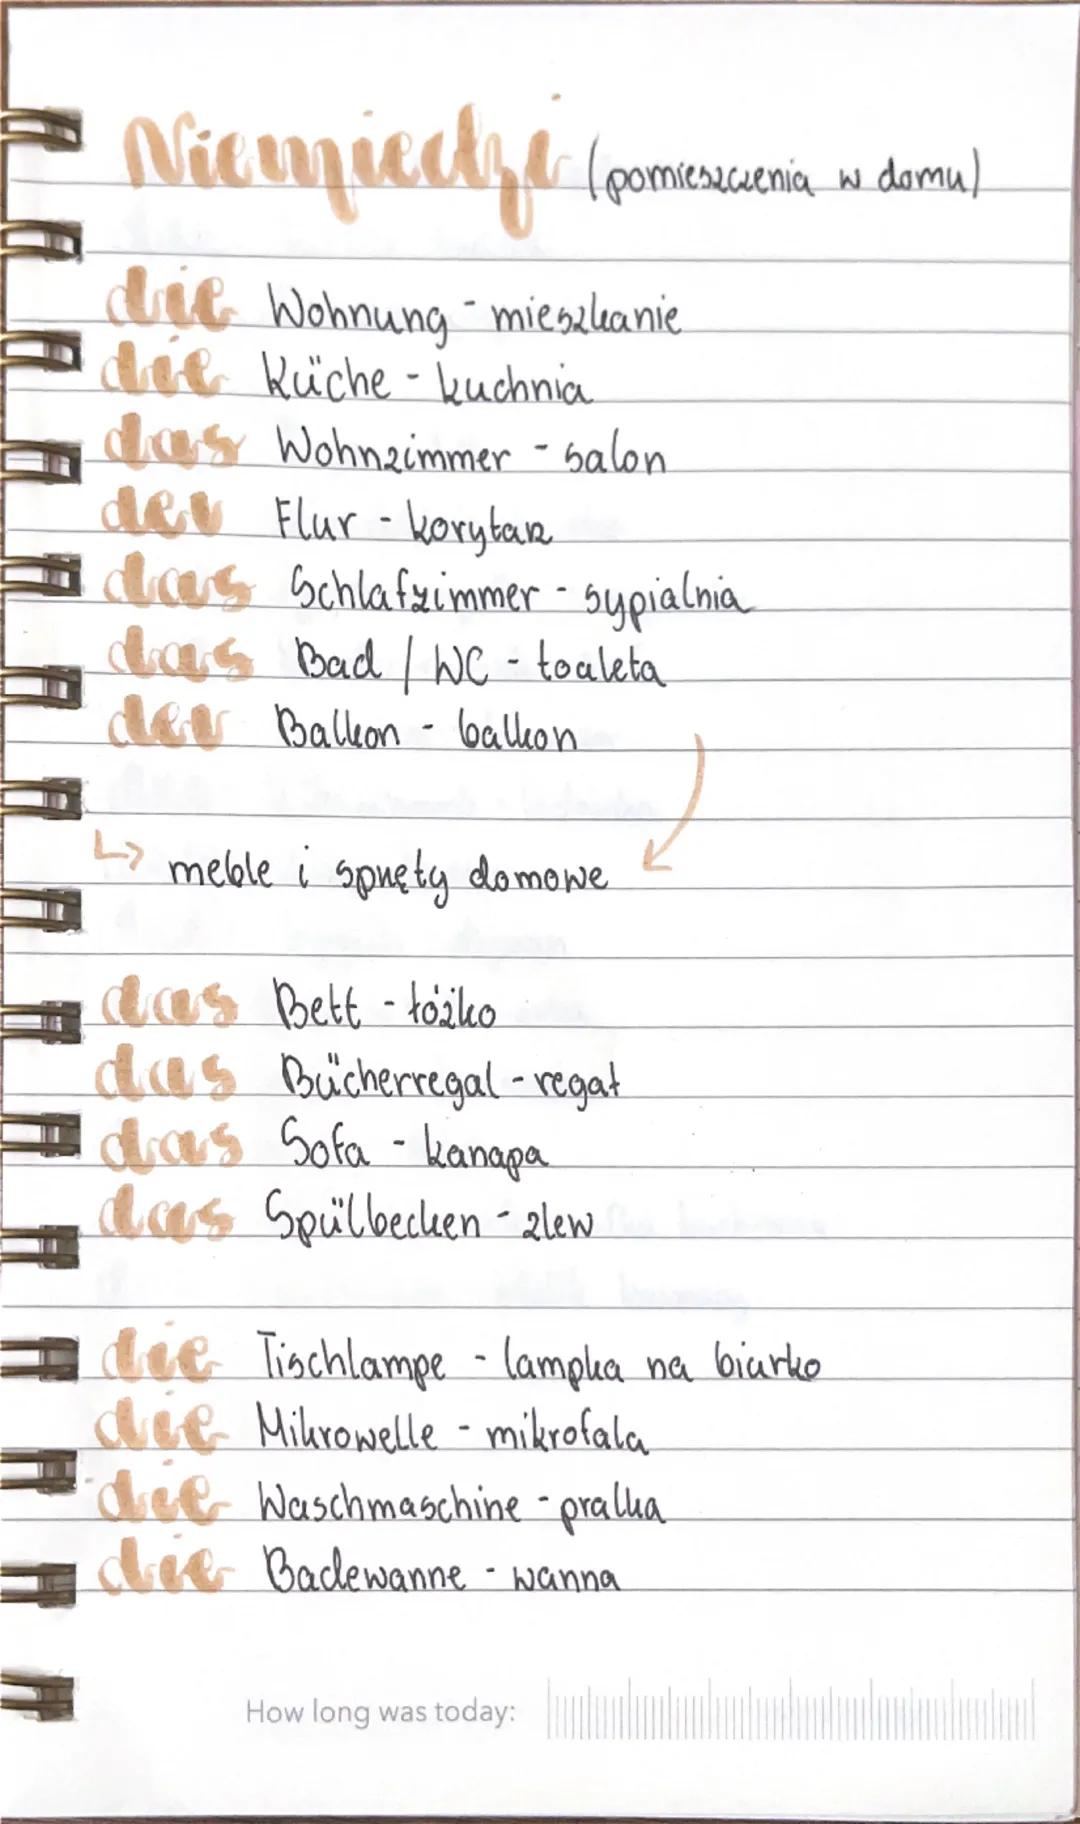 Niemiecki (pomieszczenia w domu)
die Wohnung - mieszkanie
die Küche - kuchnia
das Wohnzimmer - salon
der Flur - korytarz
das Schlafzimmer - sypialnia
das Bad / WC - toaleta
der Balkon - balkon
↳ meble i sprzęty domowe
das Bett - łóżko
das Bücherregal - regał
das Sofa - kanapa
das Spülbecken - zlew
die Tischlampe - lampka na biurko
die Mikrowelle - mikrofala
die Waschmaschine - pralka
die Badewanne - wanna
How long was today: